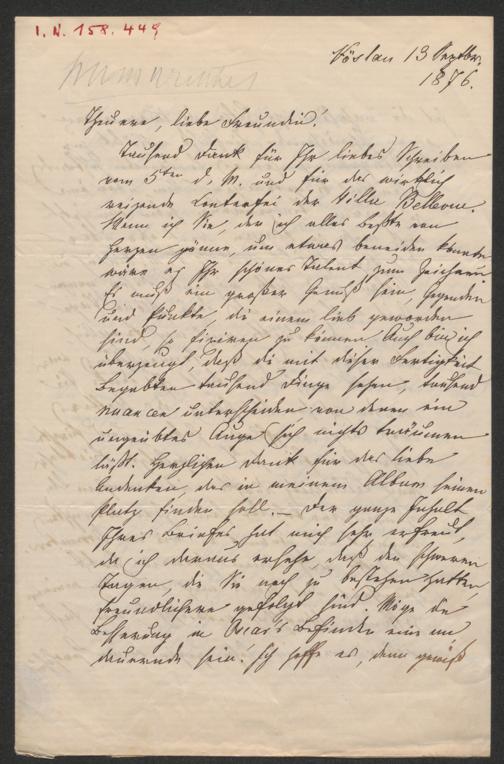 I. N. 158.449
Vöslau 13 Septbr.
1876.
Theuere, liebe Freundin!
Tausend Dank für Ihr liebes Schreiben
vom 5ten d. M. und für das wirklich
reizende Conterfei der Villa Bellevue.
Wenn ich Sie, der ich alles beßte von
Herzen gönne, um etwas beneiden könnte
wäre es Ihr schönes Talent zum Zeichnen
Es muß ein großer Genuß sein, Gegenden
und Punkte die einem lieb geworden
sind, so fixiren zu können Auch bin ich
überzeugt, daß die mit dieser Fertigkeit
Begabten tausend Dinge sehen, tausend
nuancen unterscheiden von denen ein
ungeübtes Auge sich nichts träumen
läßt. Herzlichen Dank für das liebe
Andenken, das in meinem Album seinen
Platz finden soll. — Der ganze Inhalt
Ihres Briefes hat mich sehr erfreut,
da ich daraus ersehe, daß den schweren
Tagen, die Sie noch zu bestehen hatten,
freundlichere gefolgt sind. Möge die
Besserung in Befinden eine an
dauernde sein! Ich hoffe es, denn gewiß